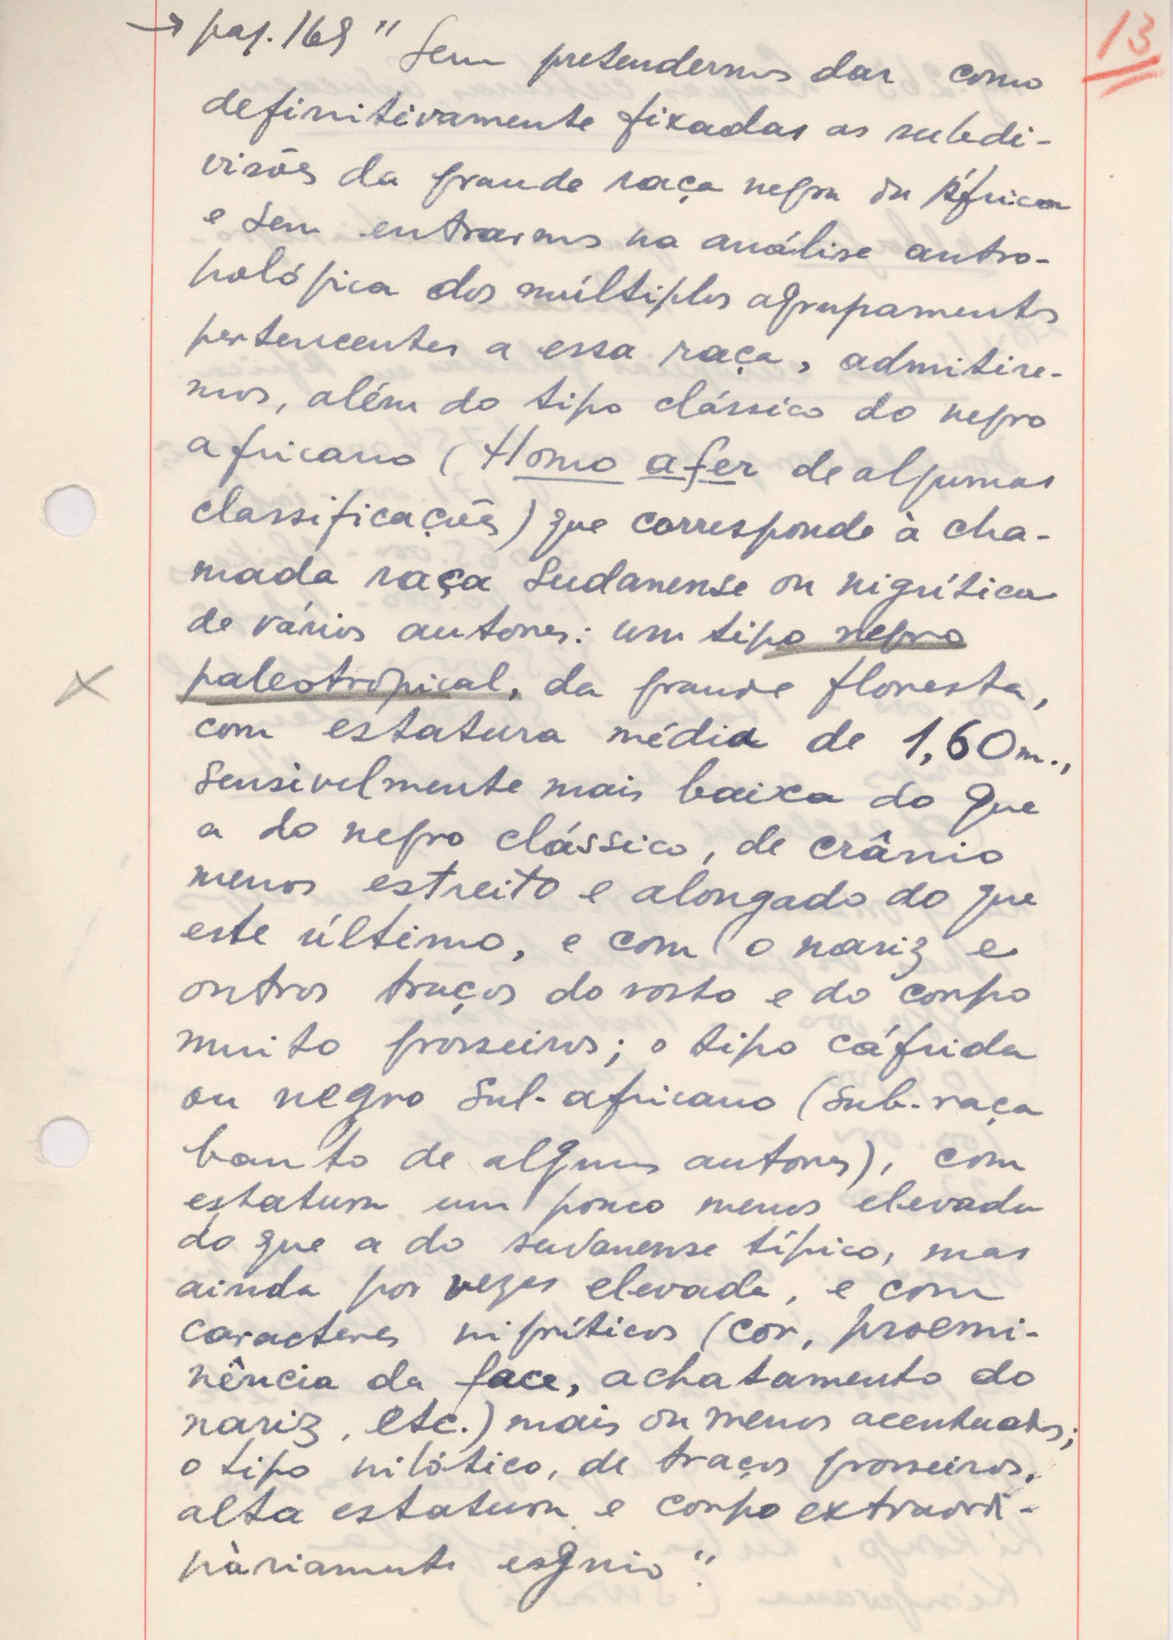 13
→ pag. 169 "Sem pretendermos dar como
definitivamente fixadas as subdi-
visões da grande raça negra da África
e sem entrarmos na análise antro-
pológica dos múltiplos agrupamentos
pertencentes a essa raça, admitire-
mos, além do tipo clássico do negro
africano (Homo afer de algumas
classificações) que corresponde à cha-
mada raça Sudanense ou nigrítica
de vários autores: um tipo negro
paleotropical, da grande floresta,
com estatura média de 1,60m.,
sensivelmente mais baixa do que
a do negro clássico, de crânio
menos estreito e alongado do que
este último, e com o nariz e
outros traços do rosto e do corpo
muito grosseiros; o tipo cáfrida
ou negro Sul-africano (sub-raça
banto de alguns autores), com
estatura um pouco menos elevada
do que a do sudanense típico, mas
ainda por vezes elevada, e com
caracteres nigríticos (cor, proemi-
nência da face, achatamento do
nariz, etc.) mais ou menos acentuados;
o tipo nilótico, de traços grosseiros,
alta estatura e corpo extraordi-
nàriamente esguio".